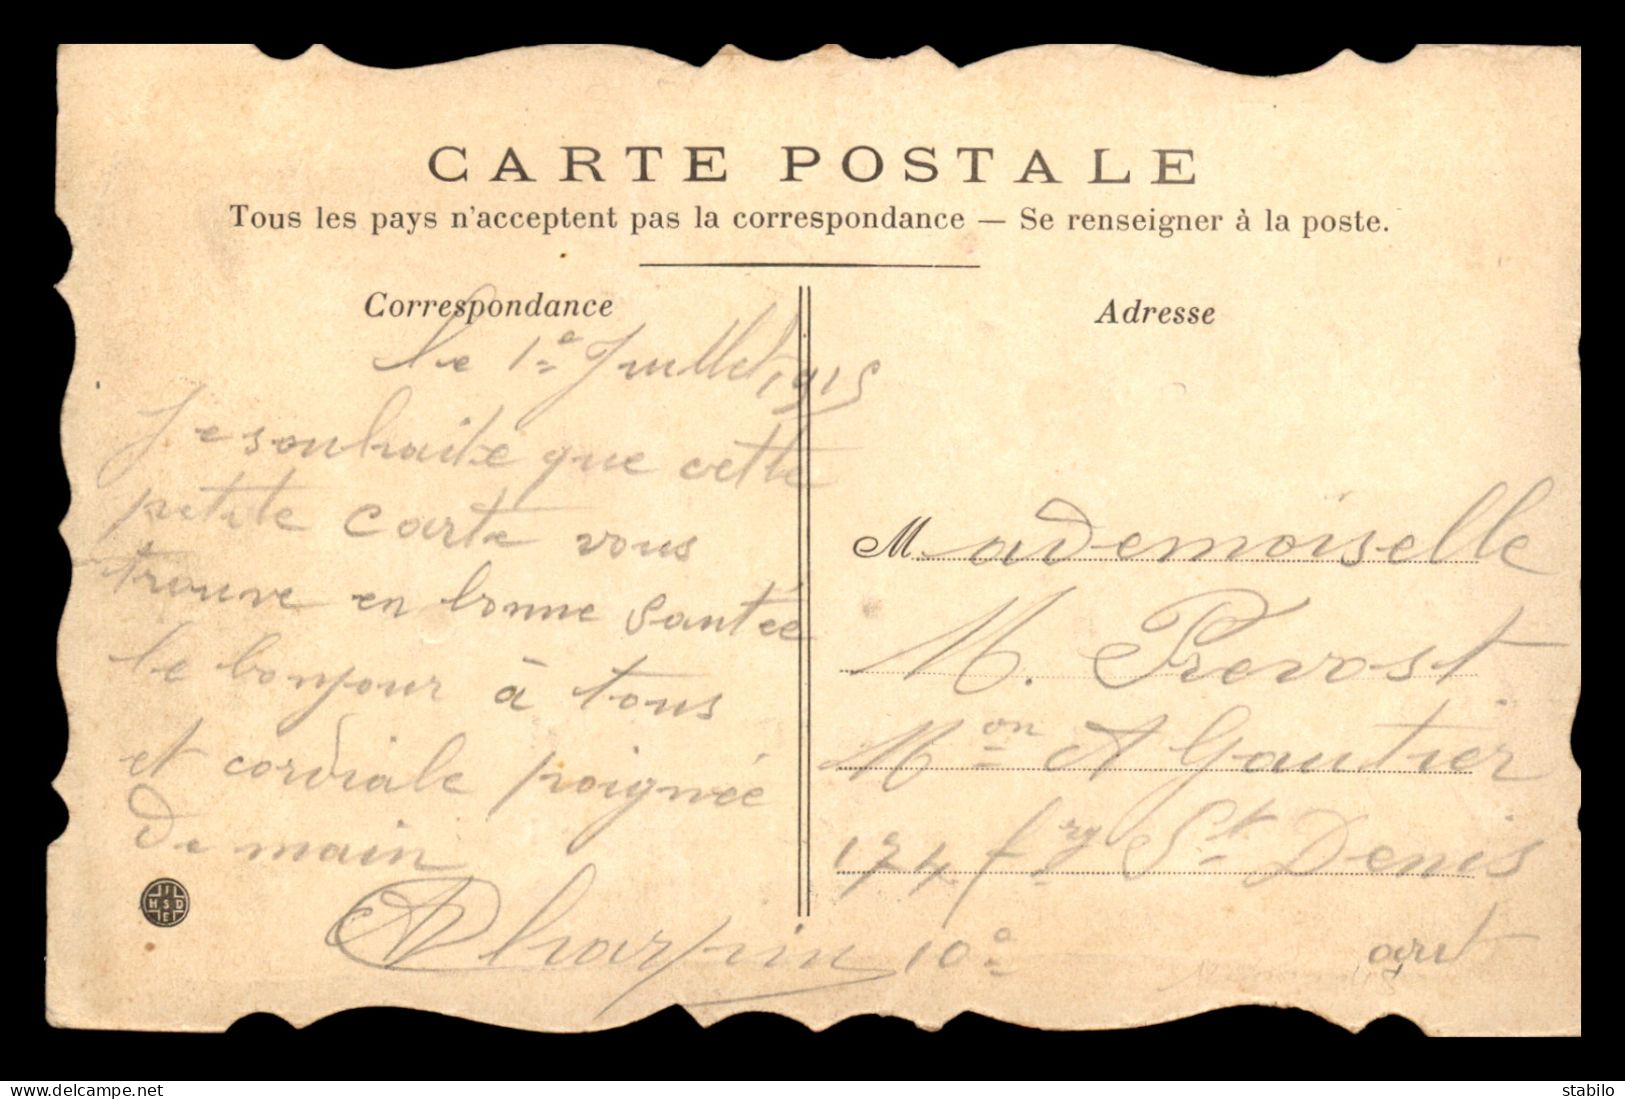 CARTE POSTALE
Tous les pays n'acceptent pas la correspondance — Se renseigner à la poste.
Correspondance
le 1e Juillet 1915
Je souhaite que cette
petite carte vous
trouve en bonne santée
le bonjour à tous
et cordiale poignée
de main
Charpin
Adresse
Mademoiselle
M. Prevost
Mon A Gautier
174 fg St Denis
10e arrt
HSD
stabilo